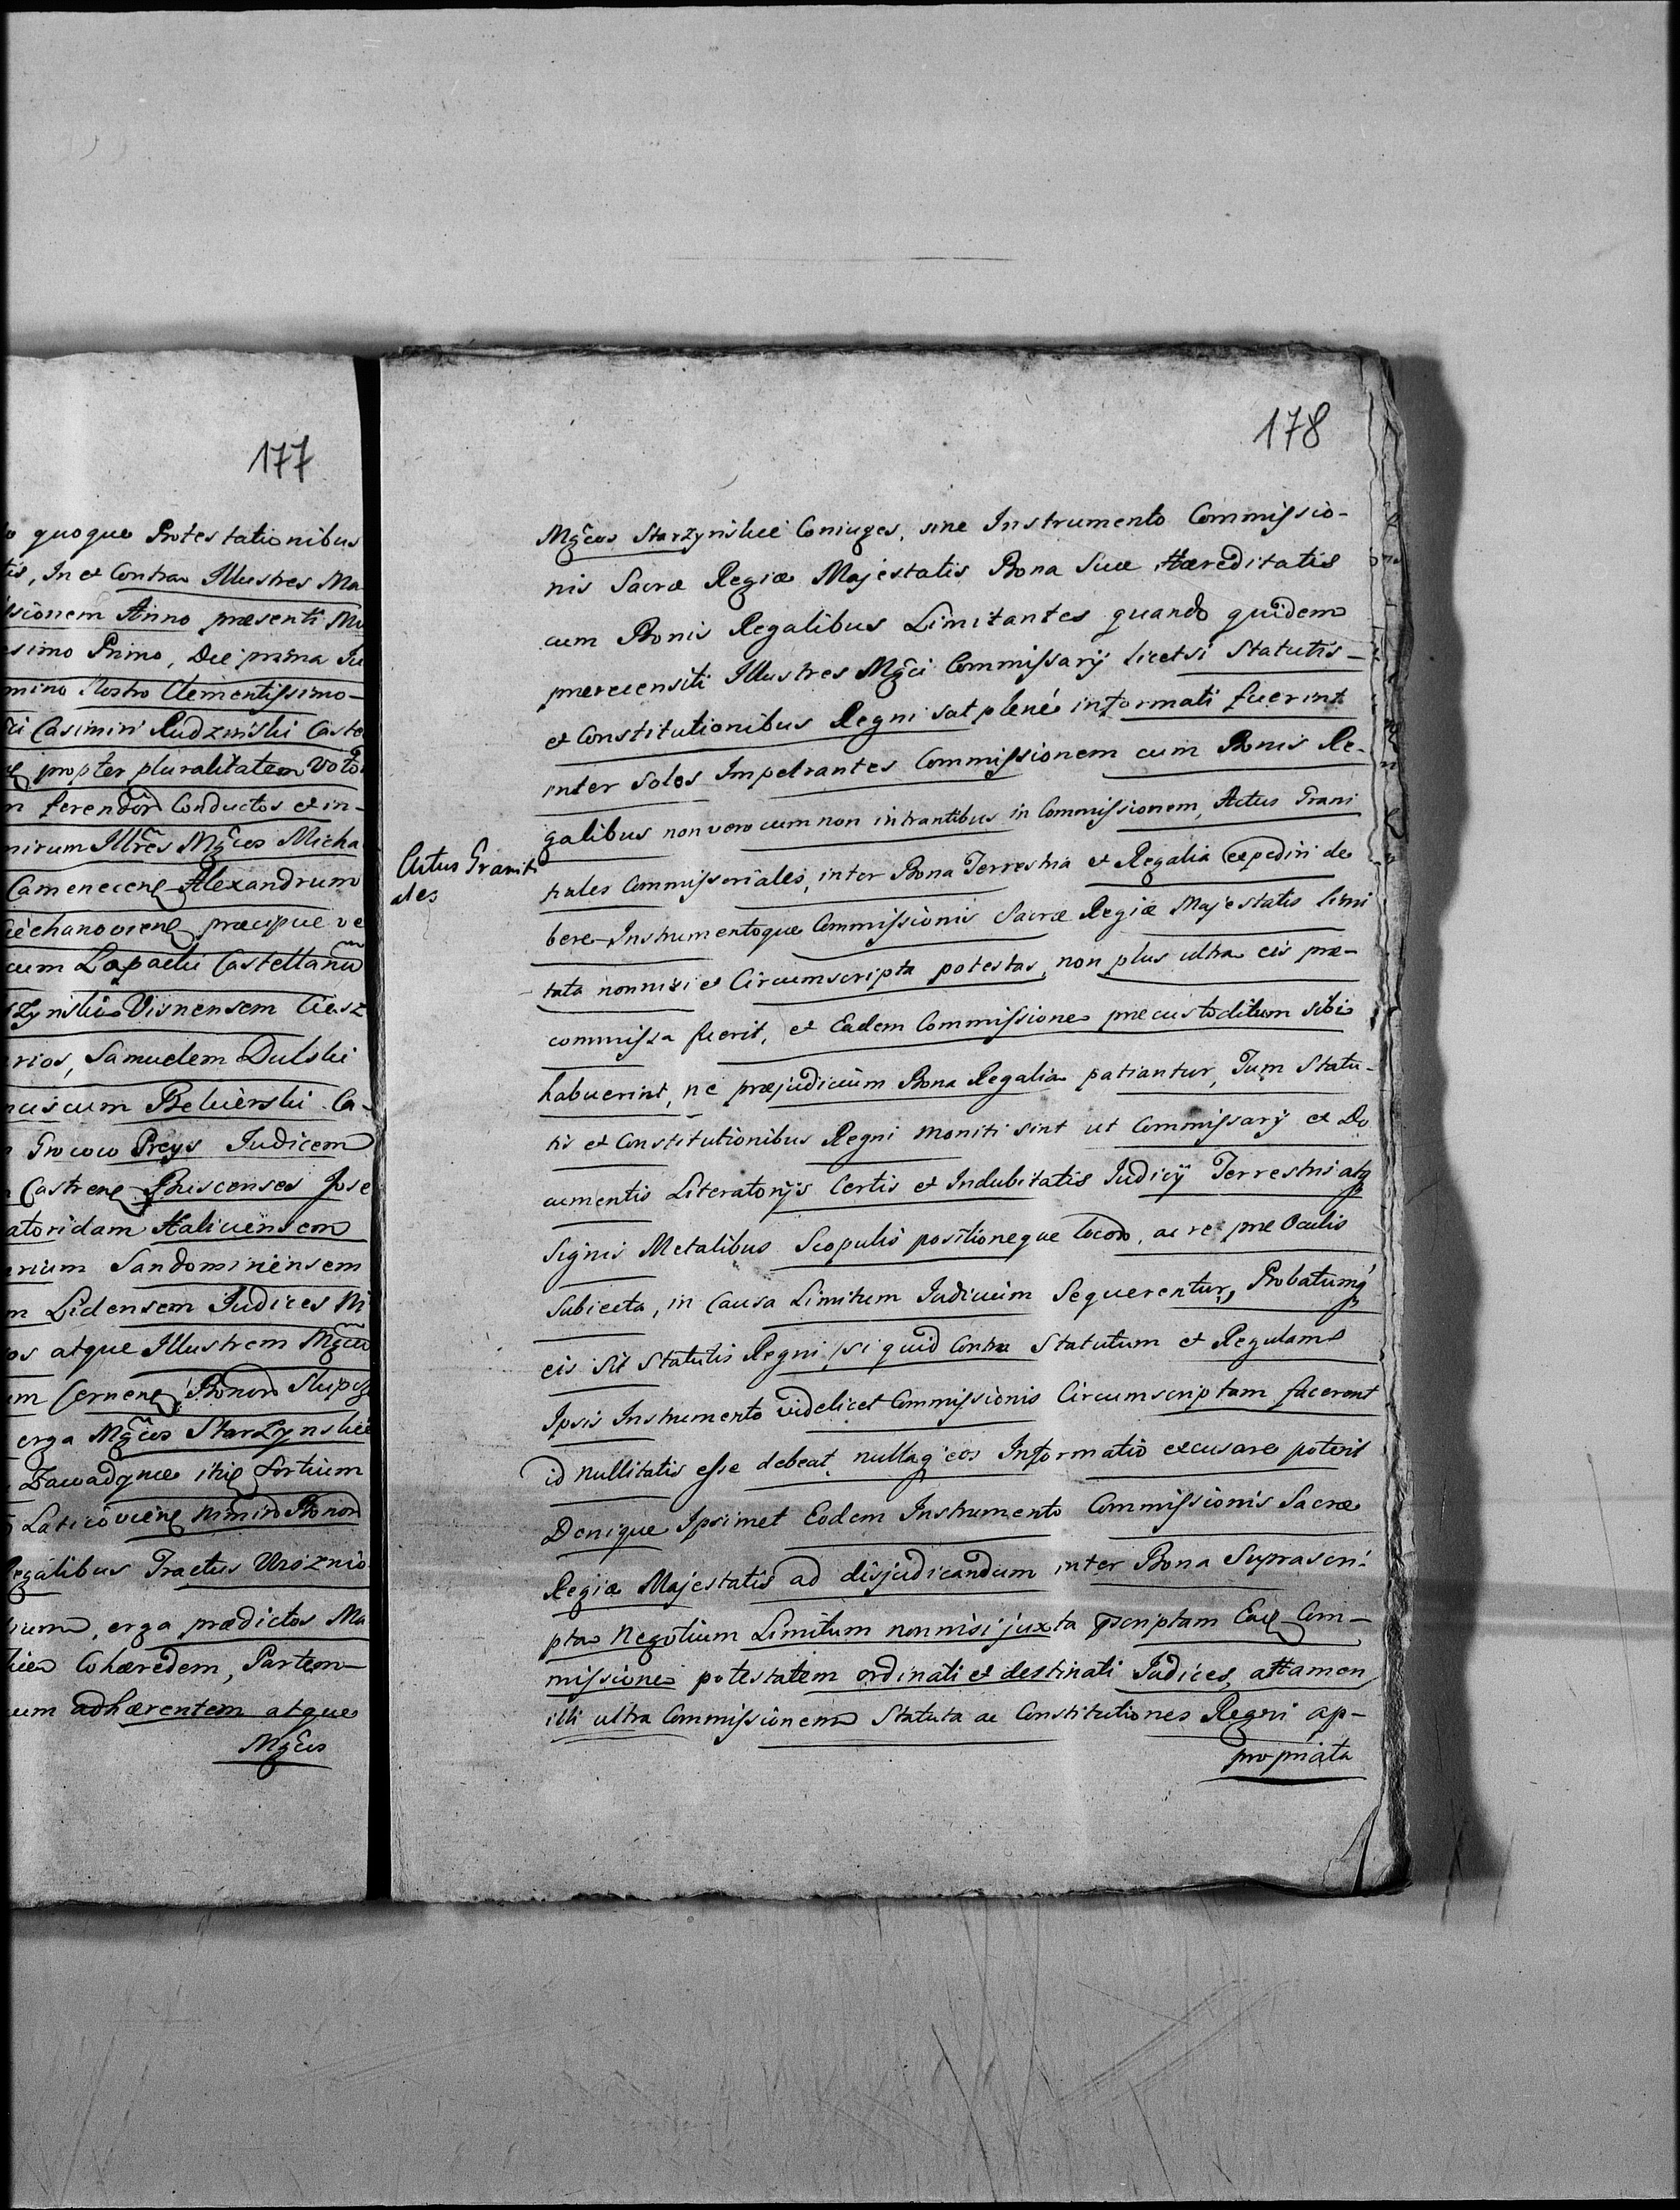 177
quoque Protestationibus
tis, In et Contra Illustres Ma
ssionem Anno præsenti Mi
esimo Primo, Die prima Ju
mino Nostro Clementissimo
Casimiri Rudzinski Caste
propter pluralitatem Voto
ferendor Conductos et in-
nirum Illres Mgcos Micha
Camenecens Alexandrum
Ciechanoviens præcipue ve
cum Łopacki Castellanu
szynski Visnensem Ciesz
rios, Samuelem Dulski
nciscum Bekierski Ca-
Procoro Preys Judicem
Castrens Buscenses Jose
atoridam Haliciensem
rium Sandomiriensem
m Lidensem Judices Mi
os atque Illustrem Mgcu
um Cernens Bonor Słupcz
erga Mgcos Starzynskie
Zawadynce itid Sortium
Laticoviens nimir Bonor
egalibus Tractus Uroznio
rium, erga prædictos Ma
Cohæredem, Partem
um adhærentem atque
Mgcos
178
Mgcos Starzynskie Coniuges, sine Instrumento Commissio-
nis Sacræ Regiæ Majestatis Bona Suæ Hæreditatis
cum Bonis Regalibus Limitantes quando quidem
prærecensiti Illustres Mgci Commissarÿ licetsi Statutis
et Constitutionibus Regni sat plené informati fuerint
inter Solos Impetrantes Commissionem cum Bonis Re-
galibus non vero cum non intrantibus in Commissionem, Actus Grani
Actus Graniti
ales
tiales Commissoriales, inter Bona Terrestria et Regalia expediri de
bere Instrumentoque Commissionis Sacræ Regiæ Majestatis limi
tata nonnisi et Circumscripta potestas, non plus ultra eis præ-
commissa fuerit, et Eadem Commissione præcustoditum sibi
habuerint, ne præjudicium Bona Regalia patiantur, Tum Statu-
tis et Constitutionibus Regni moniti sint ut Commissarÿ ex Do
cumentis Literatorÿs Certis et Indubitatis Judicÿ Terrestri atq
Signis Metalibus Scopulis positioneque locor, ac re præ Oculis
Subiecta, in Causa Limitum Judicium Sequerentur, Probatumq
eis sit Statutis Regni, si quid Contra Statutum et Regulam
Ipsis Instrumento videlicet Commissionis Circumscriptam facerent
id nullitatis esse debeat, nullaq eos Informatio excusare poterit
Denique Ipsimet Eodem Instrumento Commissionis Sacræ
Regiæ Majestatis ad disjudicandum inter Bona Suprascri-
pta Negotium Limitum nonnisi juxta pscriptam Ead Com-
missione potestatem ordinati et destinati Judices, attamen
illi ultra Commissionem Statuta ac Constitutiones Regni ap-
propriata